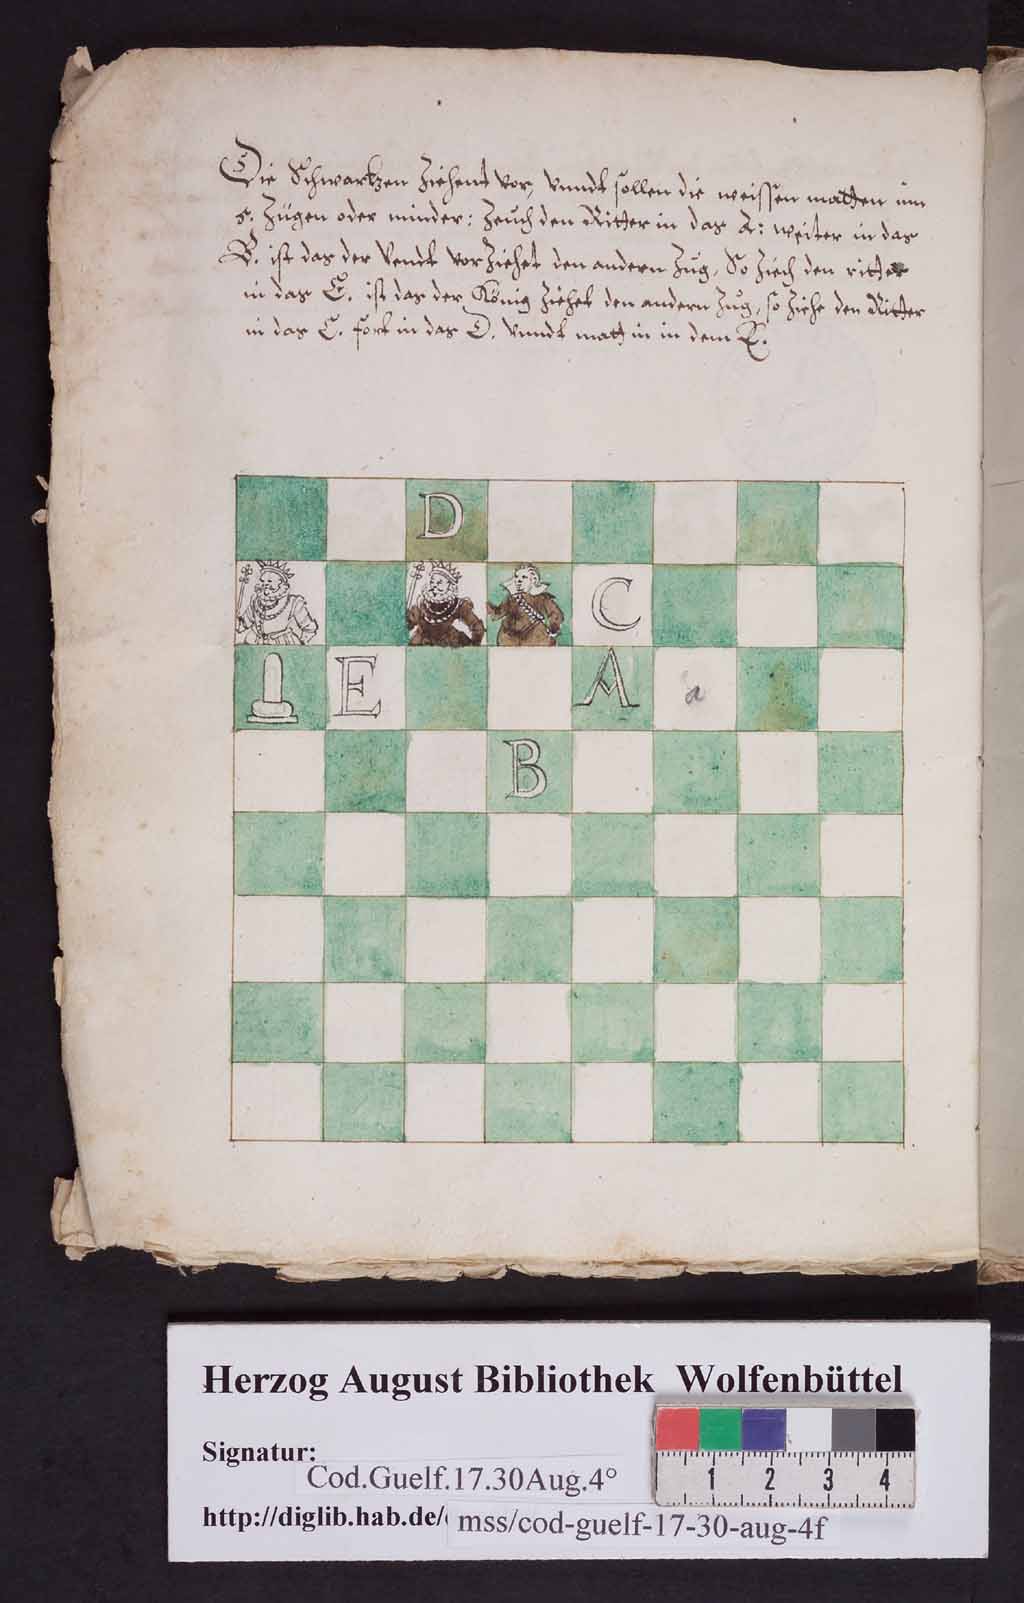 Die Schwartzen Ziehent vor, vnndt sollen die weissen matten im
5. Zügen oder minder: Zeuch den Ritter in das A: weiter in das
B. ist das der Vendt vor Ziehet den andern Zug, So Ziech den ritter
in das E. ist das der König Ziehet den andern Zug, so Ziehe den Ritter
in das C. fort in das D. vnndt matt in in dem E.
D
C
E
A
a
B
Herzog August Bibliothek Wolfenbüttel
Signatur:
Cod.Guelf.17.30Aug.4°
http://diglib.hab.de/
mss/cod-guelf-17-30-aug-4f
1 2 3 4